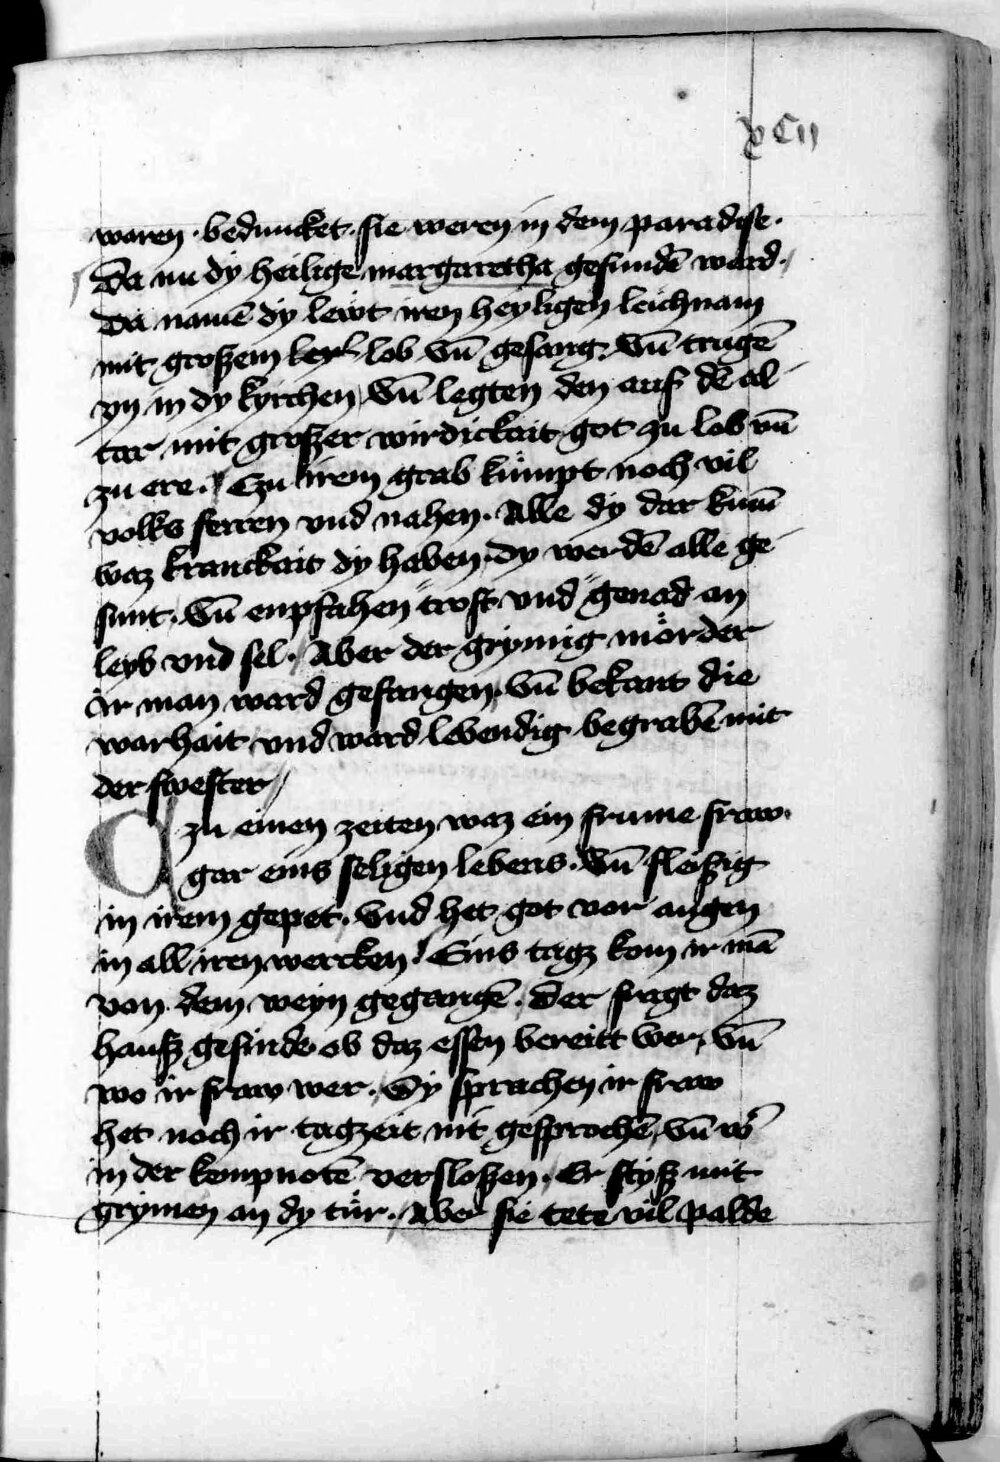 xCii
waren · beduncket · sie weren in dem paradyse ·
Da nu dy heilige margaretha gefundē ward ·
Da namē dy lewt iren heyligen leichnam
mit groszem lob vn̄ gesang · vn̄ trugē
yn in dy kyrchen vn̄ legten den auf dē al
tar mit groszer wirdickait got zu lob vn̄
zu ere · Czu irem grab kümpt noch vil
volks ferren vnd nahen · Alle dy dar kumē
waz kranckait dy haben · dy werdē alle ge
sunt · vn̄ enpfahen trost vnd genad an
leyb vnd sel · Aber der grymig mörder
ir man ward gefangen · vn̄ bekant die
warhait vnd ward lebendig begrabē mit
der swester
Czu einen zeiten waz ein frume fraw ·
gar eins seligen lebens · vn̄ fleiszig
in irem gepet · vnd het got vor augen
in all iren wercken Eins tagz kom ir mā
von dem weyn gegangē · Der fragt daz
hausz gesinde ob daz essen bereitt wer · vn̄
wo ir fraw wer · Dy sprachen ir fraw
het noch ir tagzeit nit gesprochē vn̄ w̄
in der kempnotē verslozen · Er styſz mit
grymen an dy tür · Aber sie tete vil palde